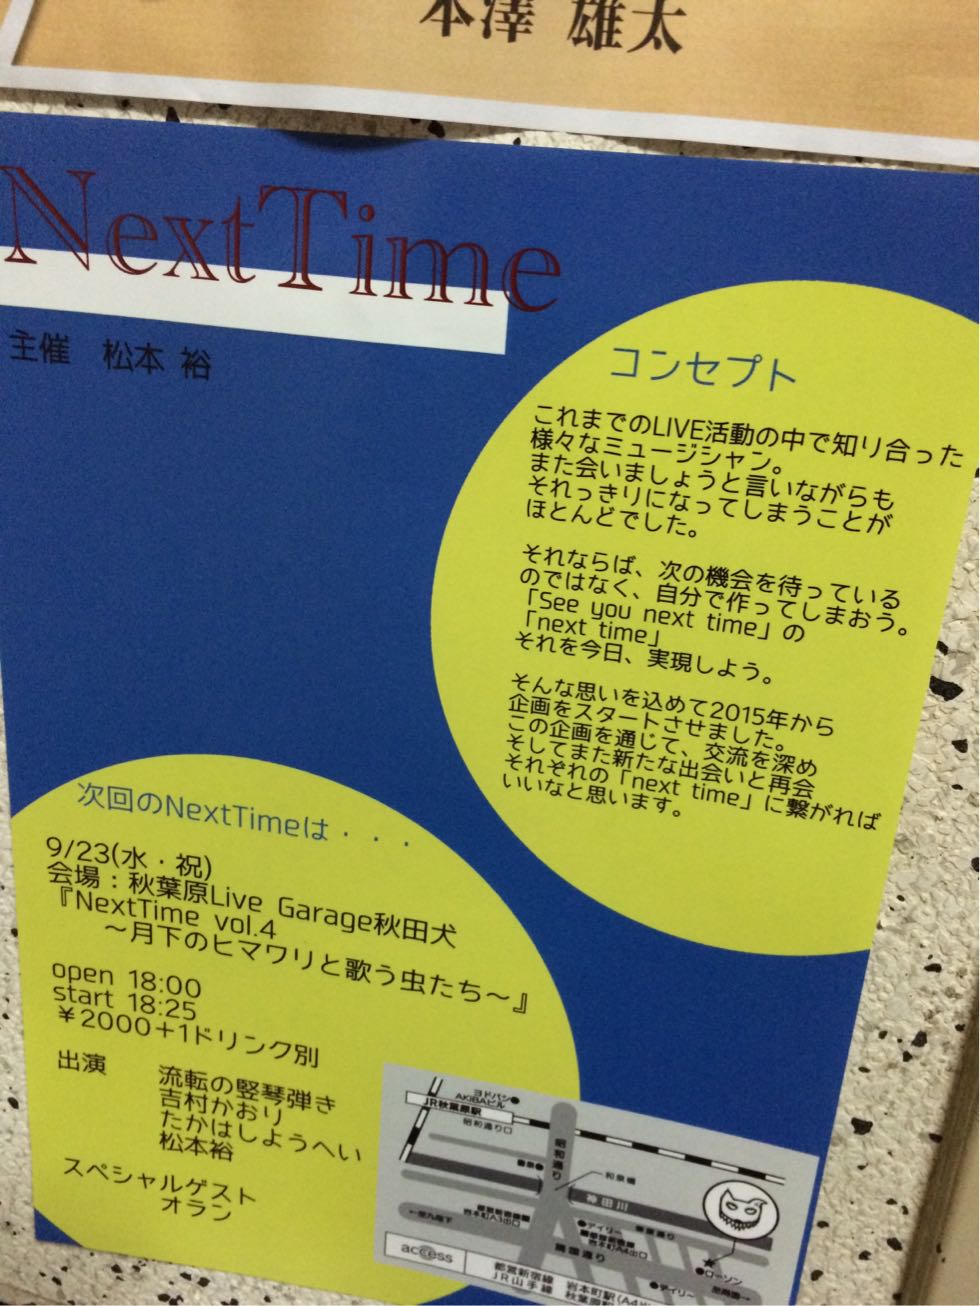 本澤 雄太
NextTime
主催 松本 裕
コンセプト
これまでのLIVE活動の中で知り合った
様々なミュージシャン。
また会いましょうと言いながらも
それっきりになってしまうことが
ほとんどでした。
それならば、次の機会を待っている
のではなく、自分で作ってしまおう。
「See you next time」の
「next time」
それを今日、実現しよう。
そんな思いを込めて2015年から
企画をスタートさせました。
この企画を通じて、交流を深め
そしてまた新たな出会いと再会
それぞれの「next time」に繋がれば
いいなと思います。
次回のNextTimeは・・・
9/23(水・祝)
会場：秋葉原Live Garage秋田犬
『NextTime vol.4
～月下のヒマワリと歌う虫たち～』
open 18:00
start 18:25
￥2000＋1ドリンク別
出演
流転の竪琴弾き
吉村かおり
たかはしようへい
松本裕
スペシャルゲスト
オラン
ヨドバシ
AKIBAビル
JR秋葉原駅
昭和通り口
昭和通り
和泉橋
神田川
都営新宿線
岩本町A3出口
←至九段下
デイリー
都営新宿線
岩本町A4出口
靖国通り
ローソン
デイリー
至両国→
access
都営新宿線 岩本町駅(A4
JR山手線 秋葉原